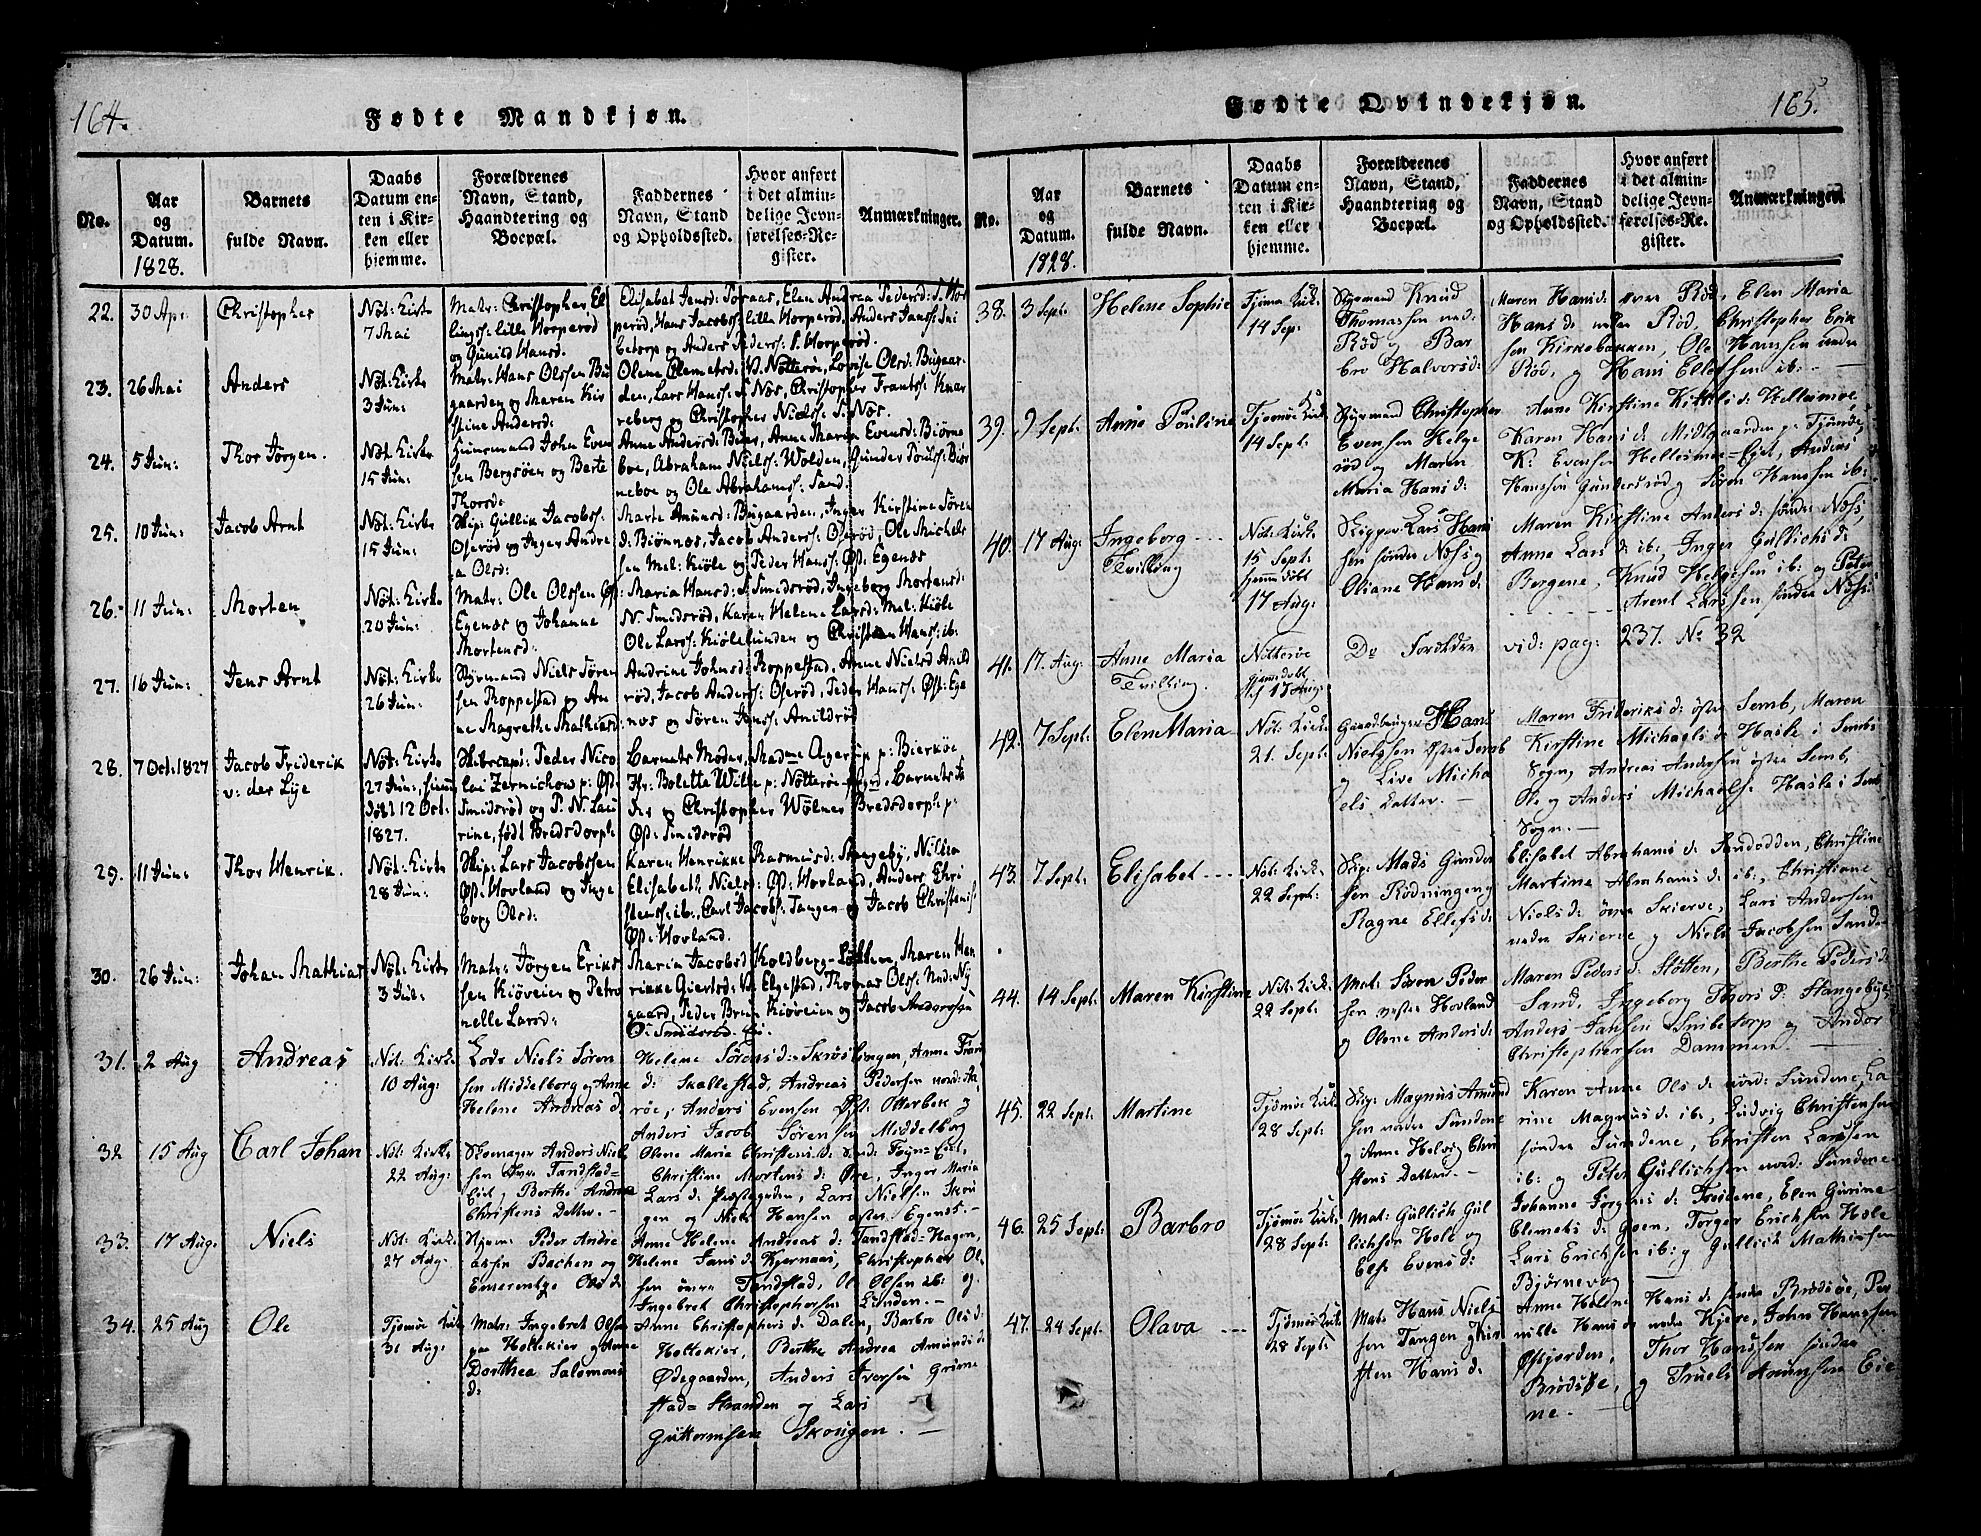 164.
Fødte Mandkjøn.
No.
Aar og Datum. 1828.
Barnets fulde Navn.
Daabs Datum enten i Kirken eller hjemme.
Forældrenes Navn, Stand, Haandtering og Boepæl.
Faddernes Navn, Stand og Opholdssted.
Hvor anført i det almindelige Jevnførelses-Register.
Anmærkninger.
22. 30 Apr: Christopher
Nöt: Kirke
7 Mai
Matr: Christopher El
lingss: lille Horperöd
og Gunild Hansd.
Elisabet Jensd: Toraas, Elen Andrea Pedersd: S. Hor
peröd, Hans Jacobss: lille Horperöd, Anders Janss: Sni
betorp og Anders Pederss: S. Horperöd.
23. 26 Mai Anders
Nöt: Kirke
3 Jun:
Matr: Hans Olssen Bu
gaarden og Maren Kir
stine Andersd:
Olene Clemetsd: V. Nötterö, Lovise Olsd: Bugaar
den, Lars Hanss: S. Nes, Christopher Frantss: Knar
reberg og Christopher Nielss: S. Nes.
24. 5 Jun: Thor Jörgen.
Nöt: Kirke
15 Jun:
Huusmand Johan Even
sen Bergsöen og Berte
Thorsd:
Anne Andersd: Buer, Anne Maria Evensd: Biörne
boe, Abraham Nielss: Wolden, Gunder Poulss: Biör
neboe og Ole Abrahamss: Sand.
25. 10 Jun: Jacob Arnt
Nöt: Kirke
15 Jun:
Skip: Gullik Jacobss:
Oseröd og Inger Andre
a Olsd:
Marte Anunsd: Bugaarden, Inger Kirstine Sören
d: Biönnes, Jacob Anderss: Oseröd, Ole Michels
sen Mel: Kiöle og Peder Hanss: Öst: Egenæs
26. 11 Jun: Morten
Nöt: Kirke
20 Jun:
Matr: Ole Olssen Öst:
Egenæs og Johanne
Mortensd:
Maria Hansd: S. Smidsröd, Ingeborg Mortensd:
N. Smidsröd, Karen Helene Larsd: Mel: Kiöle
Ole Larss: Kiölelunden og Christian Hanss: ib:
27. 16 Jun: Jens Arnt
Nöt: Kirke
26 Jun:
Styrmand Niels Sören
sen Roppestad og An
ne Magrethe Mathiesd:
Andrine Johnsd: Roppestad, Anne Nielsd Anild
röd, Jacob Anderss: Oseröd, Peder Hanss: Öst: Ege
nes og Sören Janss: Anildröd
28. 7 Oct: 1827 Jacob Friderik
v: der Lye
Nöt: Kirke
27 Jun:, hiem
döbt 12 Oct:
1827.
Skibscapt: Peder Nico
lai Zernichow p: Öst:
Smidsröd og P. N. Lau
rine, födt Bredsdorph:
Barnets Moder, Madme Agerup p: Bierköe
Fr: Bolette Wille p: Nötteröe pgrd, Barnets Fa
der og Christopher Wölner Bredsdorph p:
Öst: Smidsröd
29. 11 Jun: Thor Henrik.
Nöt: Kirke
28 Jun:
Skip: Lars Jacobssen
Öst: Hovland og Inge
borg Olsd:
Karen Henrikke Rasmusd: Stangeby,
Elisabeth Nielsd: Öst: Hovland, Anders Chri
stenss: ib:, Carl Jacobs: Tangen og Jacob Christenss:
Öst: Hovland.
30. 26 Jun: Johan Mathias
Nöt: Kirke
3 Jul:
Matr: Jörgen Eriks
sen Kiöveien og Petro
nelle Larsd:
Maria Jacobsd Holdberg-Lökken, Maren Hen
rikke Giertsd: V. Elgestad, Thomas Olss: Ned: Ny
gaard, Peder Bruun Kiöveien og Jacob Anderssen
Ö: Smidsröd.
31. 2 Aug Andreas
Not: Kirke
10 Aug:
Lods Niels Sören
sen Middelborg og Anne
Helene Andreas d.
Helene Sörens d: Skröslingen, Anne
d: Skallestad, Andreas Pedersen nord: A
röe, Anders Evensen Öst: Otterbek og
Anders Jacob Sörensen Middelborg
32 15 Aug Carl Johan
Nöt: Kirke
22 Aug:
Skomager Anders Niel
sen Övre Tandstad=
Eiet og Berthe Andrea
Christens Datter. -
Olene Maria Christens d: Eiet,
Christine Mortens d: Öre, Inger Maria
Lars d: Præstegrden, Lars Nielsen Skou
gen og Niels Hansen östre Egenes. -
33. 17 Aug. Niels
Nöt: Kirke
27 Aug:
Hjem: Peder Andre
assen Bachen og
Emerentze Ols d:
Anne Helene Andreas d: Tandstad-Hagen,
Helene Jans d: Kjernaas, Christopher Ol
sen övre Tandstad, Ole Olsen ib: og
Ingebret Christophersen Lunden. -
34. 25 Aug Ole
Tjömöe Kirke
31 Aug:
Matr: Ingebret Olsen
paa Holtekier og Anne
Dorthea Salomons
d:
Anne Christophers d: Dalen, Barbro Ols d:
Holtekier, Berthe Andrea Amunds d:
Ödegaarden, Anders Iversen Grime
stad=Stranden og Lars
Guttormsen Skougen. -
165.
Fødte Qvindekjøn.
No.
Aar og Datum. 1828.
Barnets fulde Navn.
Daabs Datum enten i Kirken eller hjemme.
Forældrenes Navn, Stand, Haandtering og Boepæl.
Faddernes Navn, Stand og Opholdssted.
Hvor anført i det almindelige Jevnførelses-Register.
Anmærkninger.
38. 3 Sept: Helene Sophie
Tjömø Kirk:
14 Sep:
Styrmand Knud
Thomassen ned:
Röd og Bar
bro Halvors d:
Maren Hans d: övre Röd, Elen Maria
Hans d: nedre Röd, Christopher Erik
sen Kirkebakken, Ole Hanssen nedre
Röd, og Hans Ellefsen ib: -
39. 9 Sept: Anne Pouline
Tjømøe Kirk:
14 Sept:
Styrmand Christopher
Evensen Helge
röd og Maren
Maria Hans d:
Anne Kirstine Kittils d: Hellesmoe,
Karen Hans d: Midtgaarden p:
K: Evensen Hellesmoe=Eiet, Anders
Hanssen Gundersröd og Sören Hanssen ib:
40. 17 Aug: Ingeborg
Tvilling
Nöt: Kirke
15 Sept:
hjemmedöbt
17 Aug:
Skipper Lars Hans
sen söndre Næss og
Oliane Hans d:
Maren Kirstine Anders d: söndre Næss,
Anne Lars d: ib:, Inger Gullichs d:
Bergene, Knud Helgesen ib: og Peter
Arent Larssen söndre Næss:
41. 17. Aug: Anne Maria
Tvilling.
Nötteröe
hjemedöbt
d 17 Aug:
Do Forældre vid: pag: 237. No 32
42. 7 Sept: Elen Maria
Nöt: Kirke
21. Sept:
Gaardbruger Hans
Nielssen östre Semb
og Live Micha
els Datter. -
Maren Frideriks d: östre Semb, Maren
Kirstine Michaels d: Hasle i Sembs
Sogn, Andreas Andersen östre Semb,
Ole og Anders Michaelss: Hasle i Semb
Sogn. -
43. 7 Sept: Elisabet
Nöt: Kirke
22 Sept:
Skip: Mads Gunder
sen Rödningen og
Ragne Ellefs d:
Elisabet Abrahams d: Sandodden, Christine
Martine Abrahams d: ib:, Christiane
Niels d: övre Skierve, Lars Andersen
nedre Skierve og Niels Jacobsen Sande
44. 14 Sept: Maren Kirstine
Nöt: Kirke
22 Sept:
Mat: Sören Peder
sen vestre Hovland
og Olene Anders d:
Maren Peders d: Slötten, Berthe Peders d:
Sand, Ingeborg Thors d: Stangebye,
Anders Jansen Snibetorp og Anders
Christophersen Dammen. -
45. 22 Sept: Martine
Tjömøe Kirke
28 Sept:
Skip: Magnus Amund
sen nedre Sundene
og Anne Helvig Chri
stens Datter. -
Karen Anne Ols d: nord: Sundene, Ca
rine Magnus d: ib:, Ludvig Christensen
söndre Sundene, Christen Larssen
ib: og Peter Gullichsen nord: Sundene
46. 25 Sept: Barbro
Tjömøe Kirk:
28 Sept:
Mat: Gullich Gul
lichsen Hole og
Else Evens d:
Johanne Jörgens d: Treidene, Elen Gurine
Clemets d: Goen, Torger Erichsen Hole
Lars Erichsen ib: og Gullich Mathissen
Bjørnevog
47. 24 Sept: Olava
Tjömøe Kirk:
28 Sept:
Mat: Hans Niels
sen Tangen og Kir
sten Hans d:
Anne Helene Hans d: söndre Brödsöe, Per
nille Hans d: nedre Kjære, John Hanssen
Østjorden, Thor Hanssen söndre
Brödsöe, og Truels Anunssen Eie
ne. -